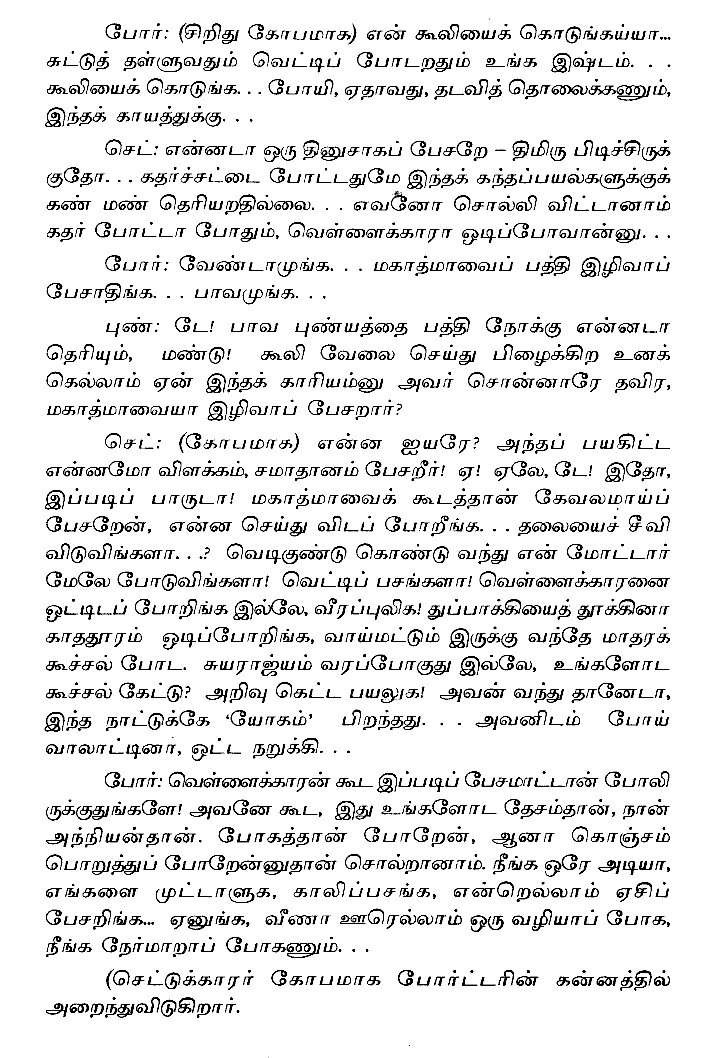 போர்: (சிறிது கோபமாக) என் கூலியைக் கொடுங்கய்யா...
சுட்டுத் தள்ளுவதும் வெட்டிப் போடறதும் உங்க இஷ்டம். . .
கூலியைக் கொடுங்க. . . போயி, ஏதாவது, தடவித் தொலைக்கணும்,
இந்தக் காயத்துக்கு. . .
செட்: என்னடா ஒரு தினுசாகப் பேசறே – திமிரு பிடிச்சிருக்
குதோ. . . கதர்ச்சட்டை போட்டதுமே இந்தக் கந்தப்பயல்களுக்குக்
கண் மண் தெரியறதில்லை. . . எவனோ சொல்லி விட்டானாம்
கதர் போட்டா போதும், வெள்ளைக்காரா ஓடிப்போவான்னு. . .
போர்: வேண்டாமுங்க. . . மகாத்மாவைப் பத்தி இழிவாப்
பேசாதிங்க. . . பாவமுங்க. . .
புண்: டே! பாவ புண்யத்தை பத்தி நோக்கு என்னடா
தெரியும், மண்டு! கூலி வேலை செய்து பிழைக்கிற உனக்
கெல்லாம் ஏன் இந்தக் காரியம்னு அவர் சொன்னாரே தவிர,
மகாத்மாவையா இழிவாப் பேசறார்?
செட்: (கோபமாக) என்ன ஐயரே? அந்தப் பயகிட்ட
என்னமோ விளக்கம், சமாதானம் பேசறீர்! ஏ! ஏலே, டே! இதோ,
இப்படிப் பாருடா! மகாத்மாவைக் கூடத்தான் கேவலமாய்ப்
பேசறேன், என்ன செய்து விடப் போறீங்க. . . தலையைச் சீவி
விடுவிங்களா. . .? வெடிகுண்டு கொண்டு வந்து என் மோட்டார்
மேலே போடுவிங்களா! வெட்டிப் பசங்களா! வெள்ளைக்காரனை
ஒட்டிடப் போறிங்க இல்லே, வீரப்புலிக! துப்பாக்கியைத் தூக்கினா
காததூரம் ஓடிப்போறிங்க, வாய்மட்டும் இருக்கு வந்தே மாதரக்
கூச்சல் போட. சுயராஜ்யம் வரப்போகுது இல்லே, உங்களோட
கூச்சல் கேட்டு? அறிவு கெட்ட பயலுக! அவன் வந்து தானேடா,
இந்த நாட்டுக்கே ‘யோகம்’ பிறந்தது. . . அவனிடம் போய்
வாலாட்டினா, ஒட்ட நறுக்கி. . .
போர்: வெள்ளைக்காரன் கூட இப்படிப் பேசமாட்டான் போலி
ருக்குதுங்களே! அவனே கூட, இது உங்களோட தேசம்தான், நான்
அந்நியன்தான். போகத்தான் போறேன், ஆனா கொஞ்சம்
பொறுத்துப் போறேன்னுதான் சொல்றானாம். நீங்க ஒரே அடியா,
எங்களை முட்டாளுக, காலிப்பசங்க, என்றெல்லாம் ஏசிப்
பேசறிங்க... ஏனுங்க, வீணா ஊரெல்லாம் ஒரு வழியாப் போக,
நீங்க நேர்மாறாப் போகணும். . .
(செட்டுக்காரர் கோபமாக போர்ட்டரின் கன்னத்தில்
அறைந்துவிடுகிறார்.